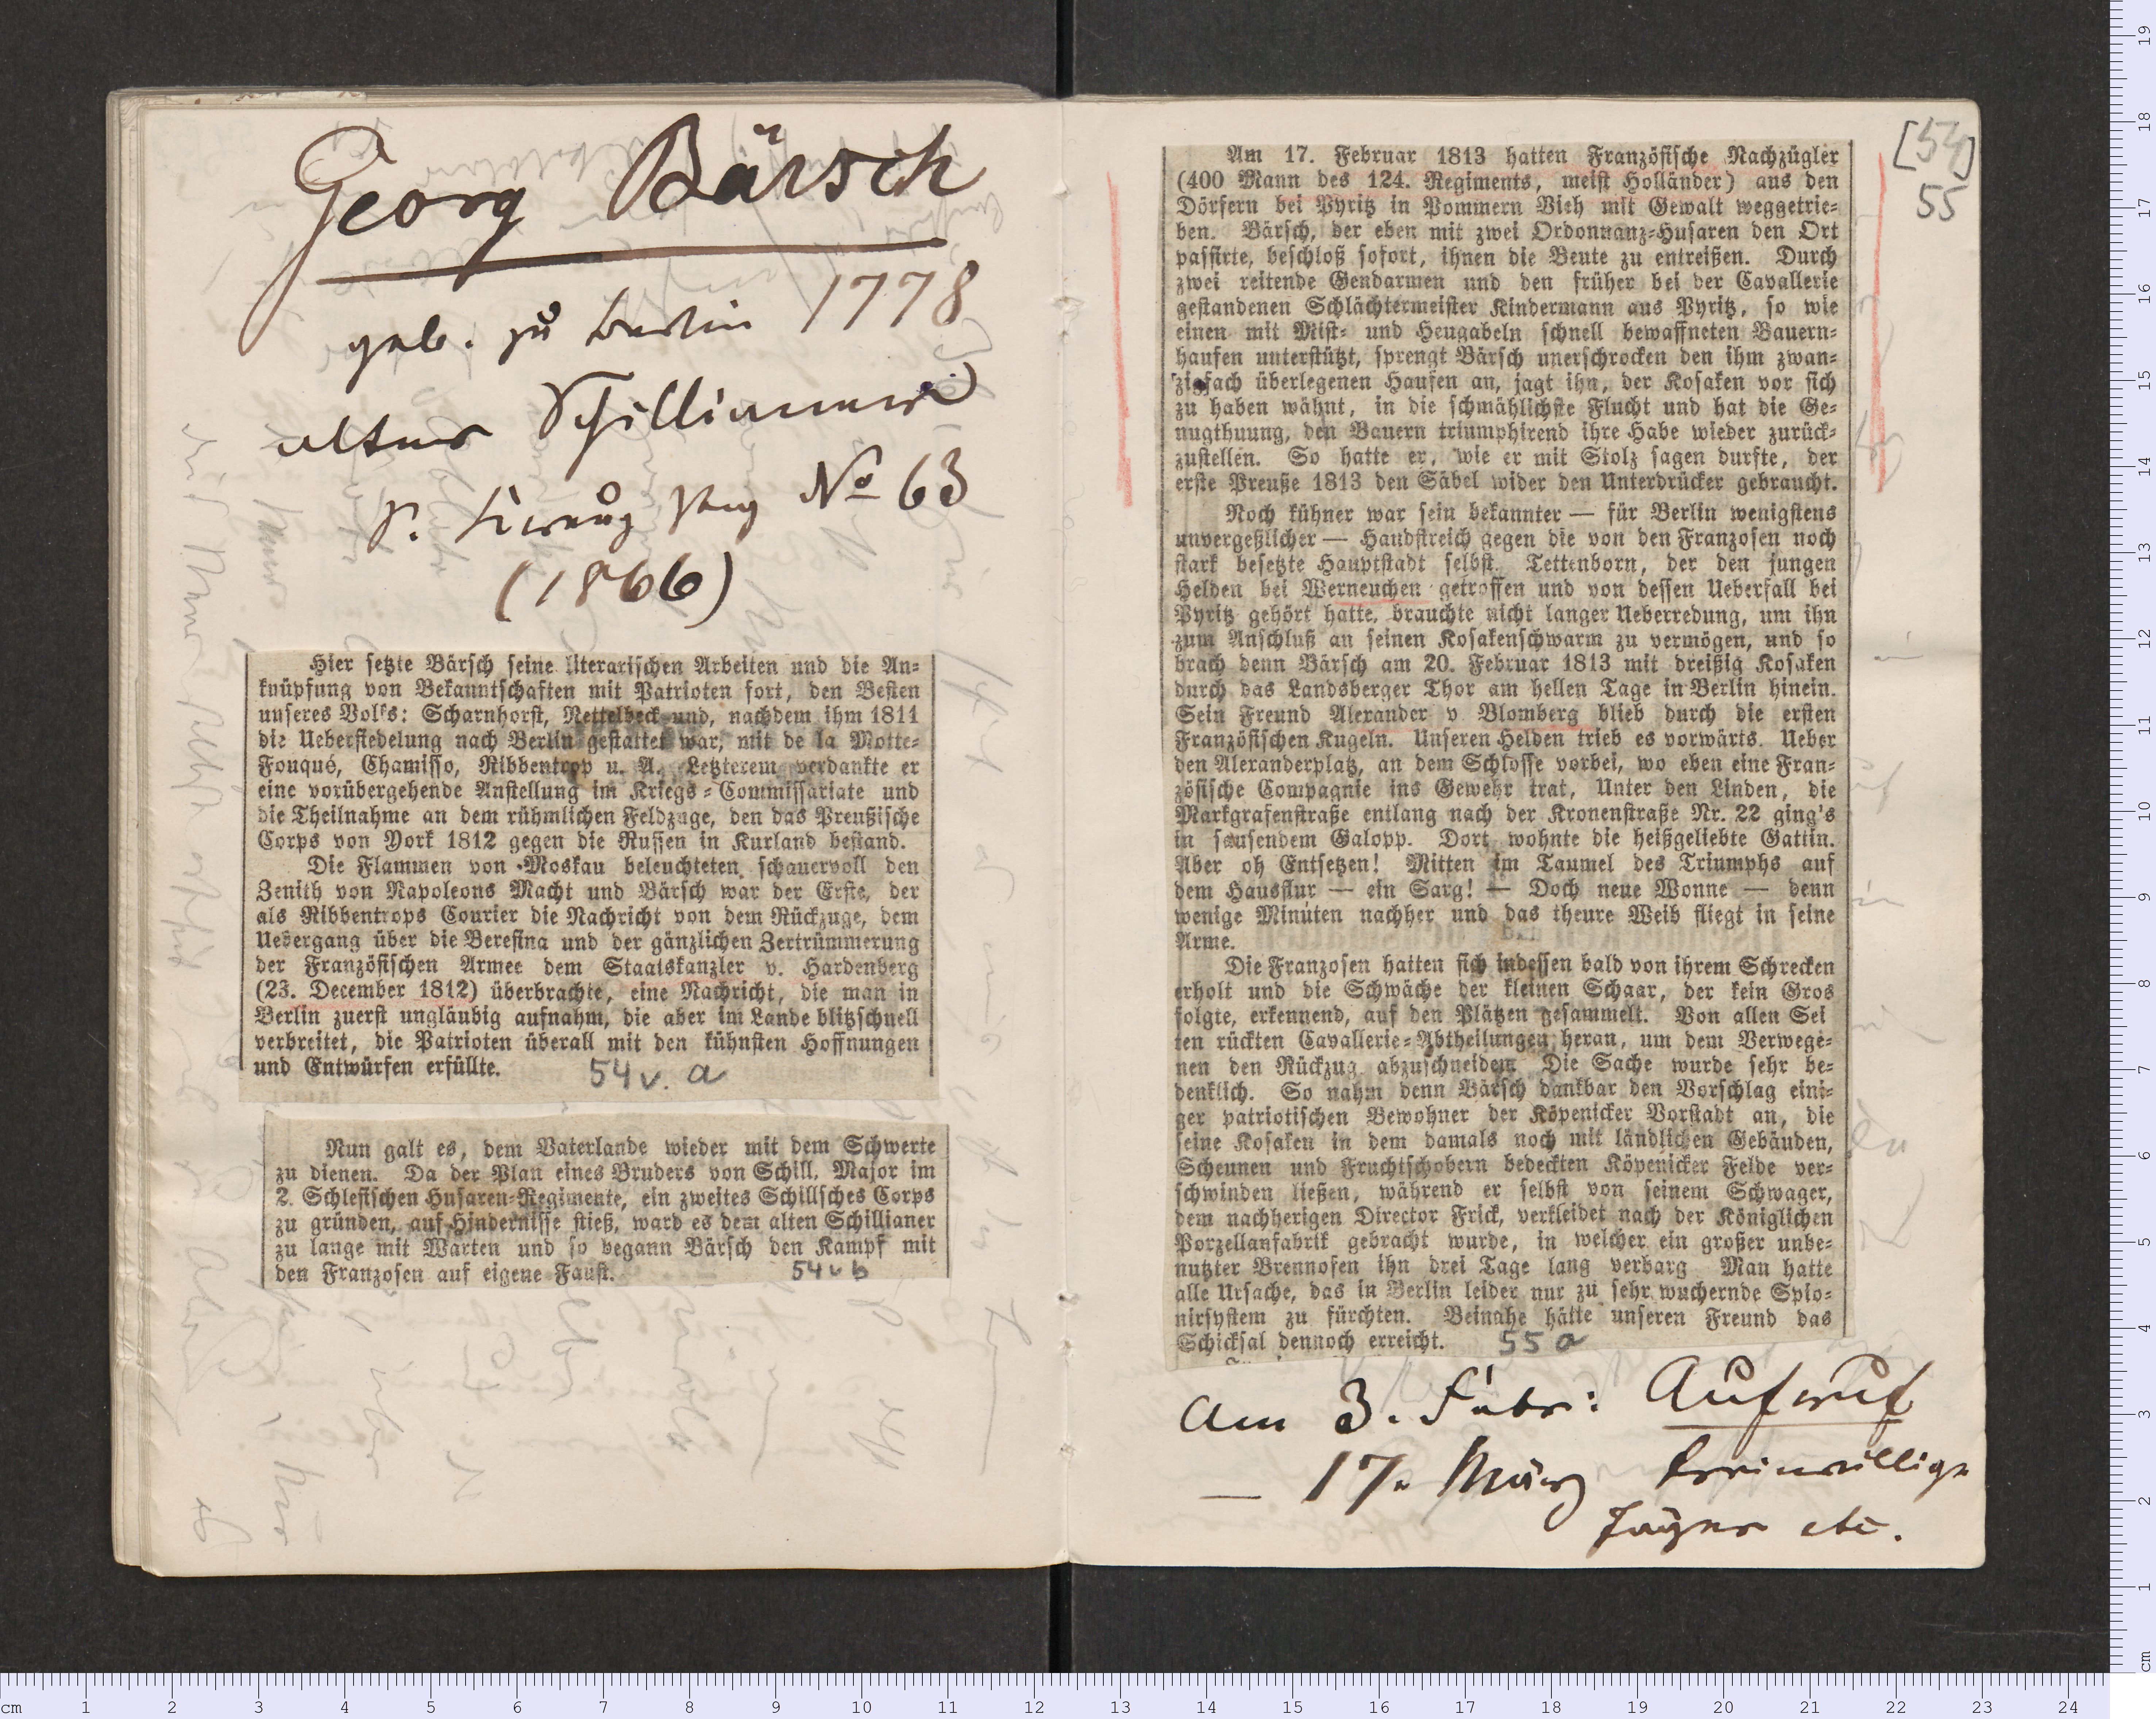 Georg Bärsch
geb. zu Berlin 1778
alter Schillianer
s. Kreuz Ztg No 63
(1866)
Hier setzte Bärsch seine literarischen Arbeiten und die An-
knüpfung von Bekanntschaften mit Patrioten fort, den Besten
unseres Volks: Scharnhorst, Nettelbeck und, nachdem ihm 1811
die Uebersiedelung nach Berlin gestattet war, mit de la Motte-
Fouqué, Chamisso, Ribbentrop u. A. Letzterem verdankte er
eine vorübergehende Anstellung im Kriegs-Commissariate und
die Theilnahme an dem rühmlichen Feldzuge, den das Preußische
Corps von York 1812 gegen die Russen in Kurland bestand.
Die Flammen von Moskau beleuchteten schauervoll den
Zenith von Napoleons Macht und Bärsch war der Erste, der
als Ribbentrops Courier die Nachricht von dem Rückzuge, dem
Uebergang über die Beresina und der gänzlichen Zertrümmerung
der Französischen Armee dem Staatskanzler v. Hardenberg
(23. December 1812) überbrachte, eine Nachricht, die man in
Berlin zuerst ungläubig aufnahm, die aber im Lande blitzschnell
verbreitet, die Patrioten überall mit den kühnsten Hoffnungen
und Entwürfen erfüllte.
54 v. a
Nun galt es, dem Vaterlande wieder mit dem Schwerte
zu dienen. Da der Plan eines Bruders von Schill, Major im
2. Schlesischen Husaren-Regimente, ein zweites Schillsches Corps
zu gründen, auf Hindernisse stieß, ward es dem alten Schillianer
zu lange mit Warten und so begann Bärsch den Kampf mit
den Franzosen auf eigene Faust.
54 v b
[54]
55
Am 17. Februar 1813 hatten Französische Nachzügler
(400 Mann des 124. Regiments, meist Holländer) aus den
Dörfern bei Pyritz in Pommern Vieh mit Gewalt weggetrie-
ben. Bärsch, der eben mit zwei Ordonnanz-Husaren den Ort
passirte, beschloß sofort, ihnen die Beute zu entreißen. Durch
zwei reitende Gendarmen und den früher bei der Cavallerie
gestandenen Schlächtermeister Kindermann aus Pyritz, so wie
einen mit Mist- und Heugabeln schnell bewaffneten Bauern-
haufen unterstützt, sprengt Bärsch unerschrocken den ihm zwan-
zigfach überlegenen Haufen an, jagt ihn, der Kosaken vor sich
zu haben wähnt, in die schmählichste Flucht und hat die Ge-
nugthuung, den Bauern triumphirend ihre Habe wieder zurück-
zustellen. So hatte er, wie er mit Stolz sagen durfte, der
erste Preuße 1813 den Säbel wider den Unterdrücker gebraucht.
Noch kühner war sein bekannter — für Berlin wenigstens
unvergeßlicher — Handstreich gegen die von den Franzosen noch
stark besetzte Hauptstadt selbst. Tettenborn, der den jungen
Helden bei Werneuchen getroffen und von dessen Ueberfall bei
Pyritz gehört hatte, brauchte nicht langer Ueberredung, um ihn
zum Anschluß an seinen Kosakenschwarm zu vermögen, und so
brach denn Bärsch am 20. Februar 1813 mit dreißig Kosaken
durch das Landsberger Thor am hellen Tage in Berlin hinein.
Sein Freund Alexander v Blomberg blieb durch die ersten
Französischen Kugeln. Unseren Helden trieb es vorwärts. Ueber
den Alexanderplatz, an dem Schlosse vorbei, wo eben eine Fran-
zösische Compagnie ins Gewehr trat, Unter den Linden, die
Markgrafenstraße entlang nach der Kronenstraße Nr. 22 ging's
in sausendem Galopp. Dort wohnte die heißgeliebte Gattin.
Aber oh Entsetzen! Mitten im Taumel des Triumphs auf
dem Hausflur — ein Sarg! — Doch neue Wonne — denn
wenige Minuten nachher und das theure Weib fliegt in seine
Arme.
Die Franzosen hatten sich indessen bald von ihrem Schrecken
erholt und die Schwäche der kleinen Schaar, der kein Gros
folgte, erkennend, auf den Plätzen gesammelt. Von allen Sei
ten rückten Cavallerie-Abtheilungen heran, um dem Verwege-
nen den Rückzug abzuschneiden. Die Sache wurde sehr be-
denklich. So nahm denn Bärsch dankbar den Vorschlag eini-
ger patriotischen Bewohner der Köpenicker Vorstadt an, die
seine Kosaken in dem damals noch mit ländlichen Gebäuden,
Scheunen und Fruchtschobern bedeckten Köpenicker Felde ver-
schwinden ließen, während er selbst von seinem Schwager,
dem nachherigen Director Frick, verkleidet nach der Königlichen
Porzellanfabrik gebracht wurde, in welcher ein großer unbe-
nutzter Brennofen ihn drei Tage lang verbarg Man hatte
alle Ursache, das in Berlin leider nur zu sehr wuchernde Spio-
nirsystem zu fürchten. Beinahe hätte unseren Freund das
Schicksal dennoch erreicht.
55 a
Am 3. Febr: Aufruf
— 17. März freiwillige
Jäger etc.